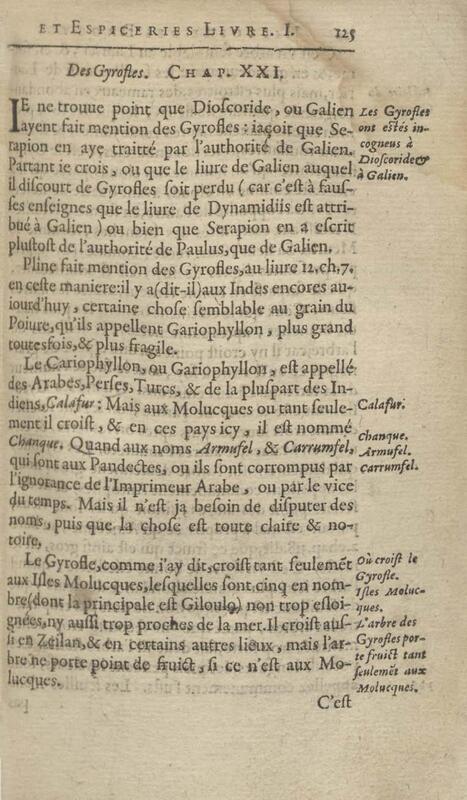 ET ESPICERIES LIVRE. I. 125
Des Gyrofles. CHAP. XXI.
IE ne trouue point que Dioscoride, ou Galien
ayent fait mention des Gyrofles : iaçoit que Se-
rapion en aye traitté par l'authorité de Galien.
Partant ie crois, ou que le liure de Galien auquel
il discourt de Gyrofles soit perdu ( car c'est à faus-
ses enseignes que le liure de Dynamidiis est attri-
bué à Galien ) ou bien que Serapion en a escrit
plustost de l'authorité de Paulus, que de Galien.
Les Gyrofles
ont estés in-
cogneus à
Dioscoride &
à Galien.
Pline fait mention des Gyrofles, au liure 12. ch. 7.
en ceste maniere: il y a (dit-il) aux Indes encores au-
iourd'huy, certaine chose semblable au grain du
Poiure, qu'ils appellent Gariophyllon, plus grand
toutesfois, & plus fragile.
Le Cariophyllon, ou Gariophyllon, est appellé
des Arabes, Perses, Turcs, & de la pluspart des In-
diens, Calafur : Mais aux Molucques ou tant seule-
ment il croist, & en ces pays icy, il est nommé
Chanque. Quand aux noms Armufel, & Carrumfel,
qui sont aux Pandectes, ou ils sont corrompus par
l'ignorance de l'Imprimeur Arabe, ou par le vice
du temps. Mais il n'est ja besoin de disputer des
noms, puis que la chose est toute claire & no-
toire.
Calafur.
Chanque.
Armufel.
Carrumfel.
Le Gyrofle, comme i'ay dit, croist tant seulemēt
aux Isles Molucques, lesquelles sont cinq en nom-
bre (dont la principale est Giloulo) non trop esloi-
gnées, ny aussi trop proches de la mer. Il croist aus-
si en Zeilan, & en certains autres lieux, mais l'ar-
bre ne porte point de fruict, si ce n'est aux Mo-
lucques.
Où croist le
Gyrofle.
Isles Moluc-
ques.
L'arbre des
Gyrofles por-
te fruict tant
seulemēt aux
Molucques.
C'est